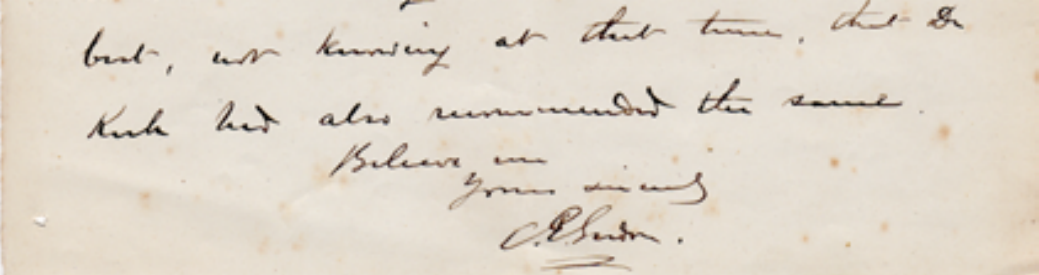 best, not knowing at that time, that Dr
Kirk had also recommended the same.
Believe me
Yours sincerely